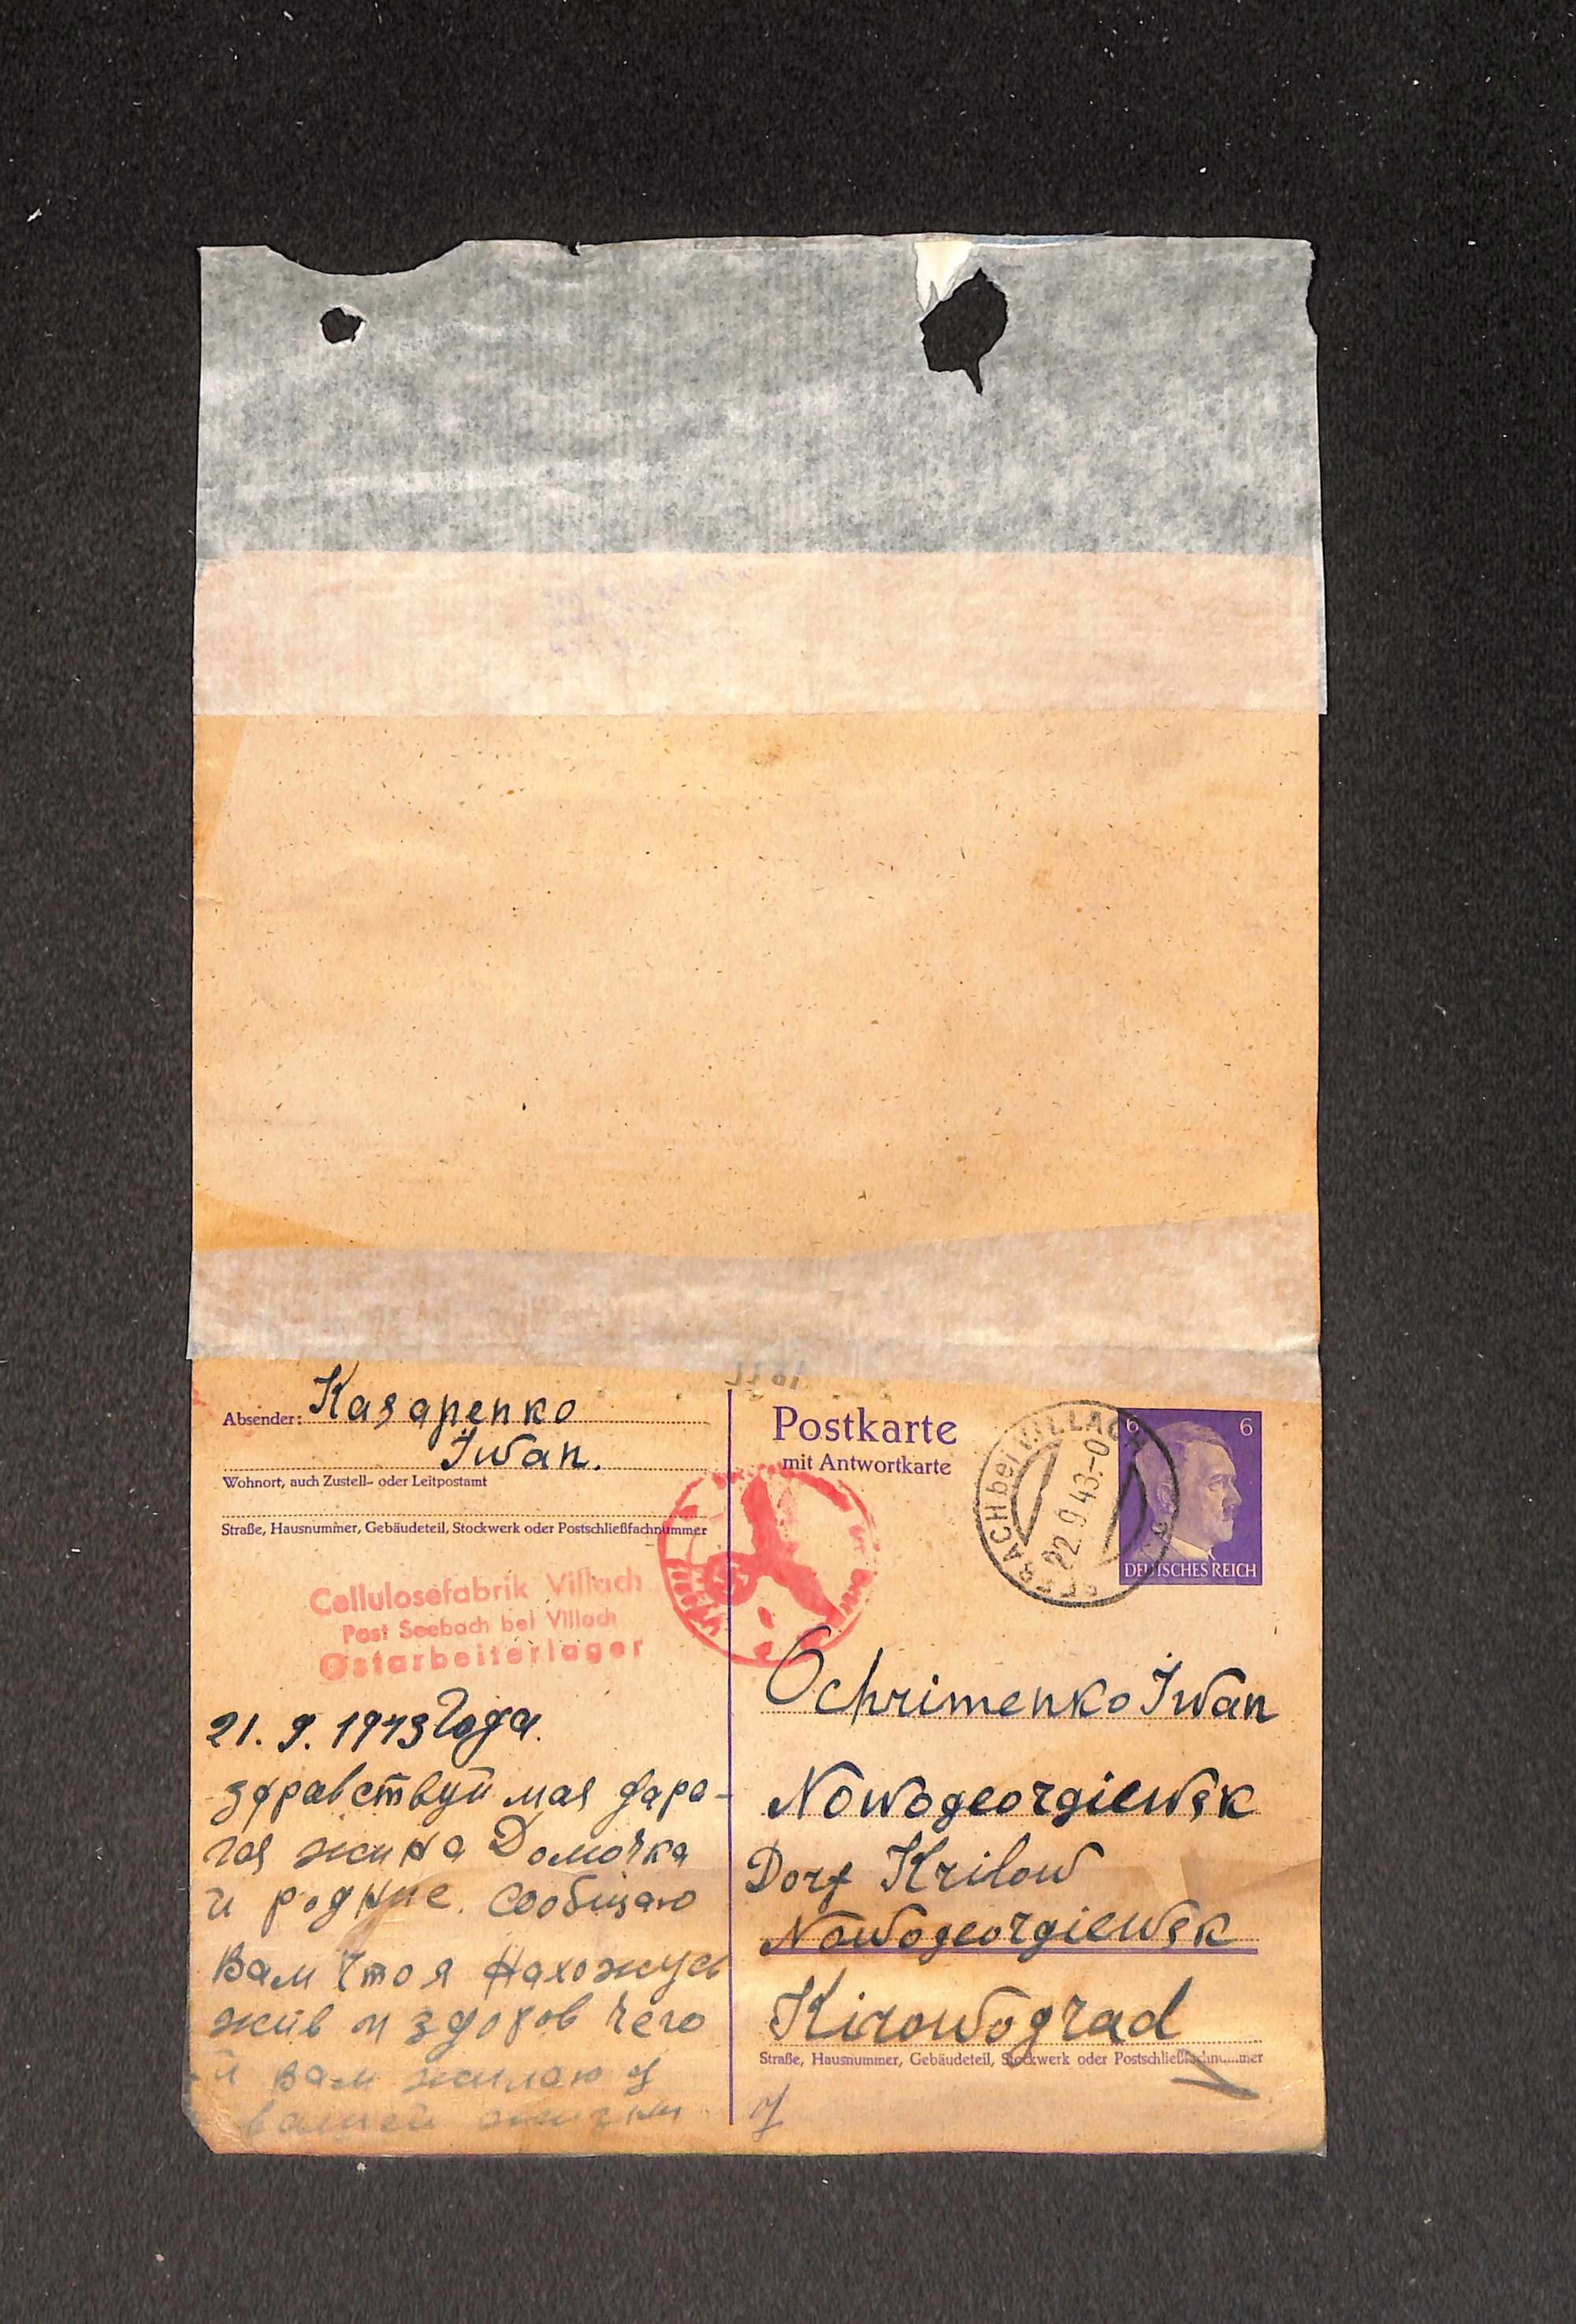 Absender: Kasapenko
Iwan.
Wohnort, auch Zustell- oder Leitpostamt
Straße, Hausnummer, Gebäudeteil, Stockwerk oder Postschließfachnummer
Cellulosefabrik Villach
Post Seebach bei Villach
Ostarbeiterlager
21. 9. 1943 Года.
здравствуй мая дара-
гая жина Домочка
и родные. Сообщаю
Вам что я нахожусь
жив и здоров чего
и вам жилаю у
вашей жизни
Postkarte
mit Antwortkarte
bei VILLACH
22.9.43.-0
6 6
DEUTSCHES REICH
Ochrimenko Iwan
Nowogeorgiewsk
Dorf Krilow
Nowogeorgiewsk
Kirowograd
Straße, Hausnummer, Gebäudeteil, Stockwerk oder Postschließfachnummer